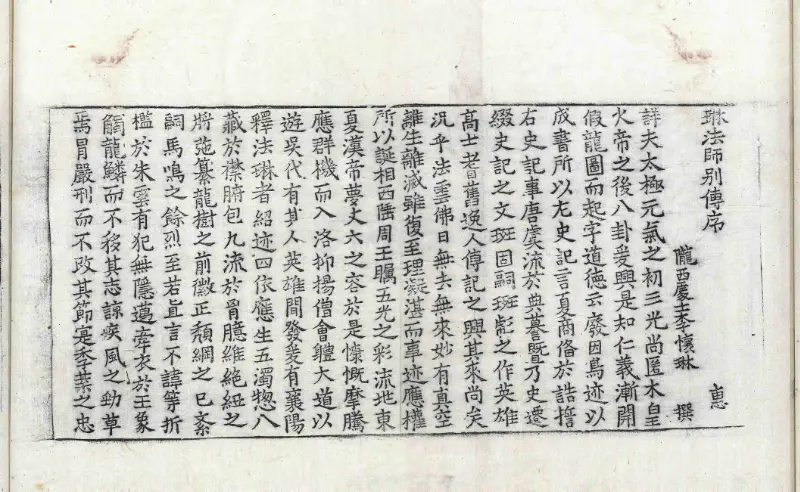 琳法師別傳序 惠
隴西處士李懷琳 撰
詳夫太極元氣之初三光尚匿木皇
火帝之後八卦爰興是知仁義漸開
假龍圖而起字道德云廢因鳥迹以
成書所以左史記言夏商俻於誥誓
右史記事唐虞流於典謩暨乃史遷
綴史記之文班固嗣班彪之作英雄
高士耆舊逸人傳記之興其來尚矣
況乎法雲佛日無去無來妙有真空
離生離滅雖復至理凝湛而事迹應權
所以誕相西陲周王矚五光之彩流地東
夏漢帝夢丈六之容於是慷慨摩騰
應群機而入洛抑揚僧會體大道以
遊吳代有其人英雄間發爰有襄陽
釋法琳者紹迹四依應生五濁惣八
藏於襟腑包九流於胷臆維絶紐之
將弛纂龍樹之前徽正頹綱之已紊
嗣馬鳴之餘烈至若直言不諱等折
檻於朱雲有犯無隱邁牽衣於王象
觸龍鱗而不移其志諒疾風之勁草
焉冒嚴刑而不改其節寔季葉之忠